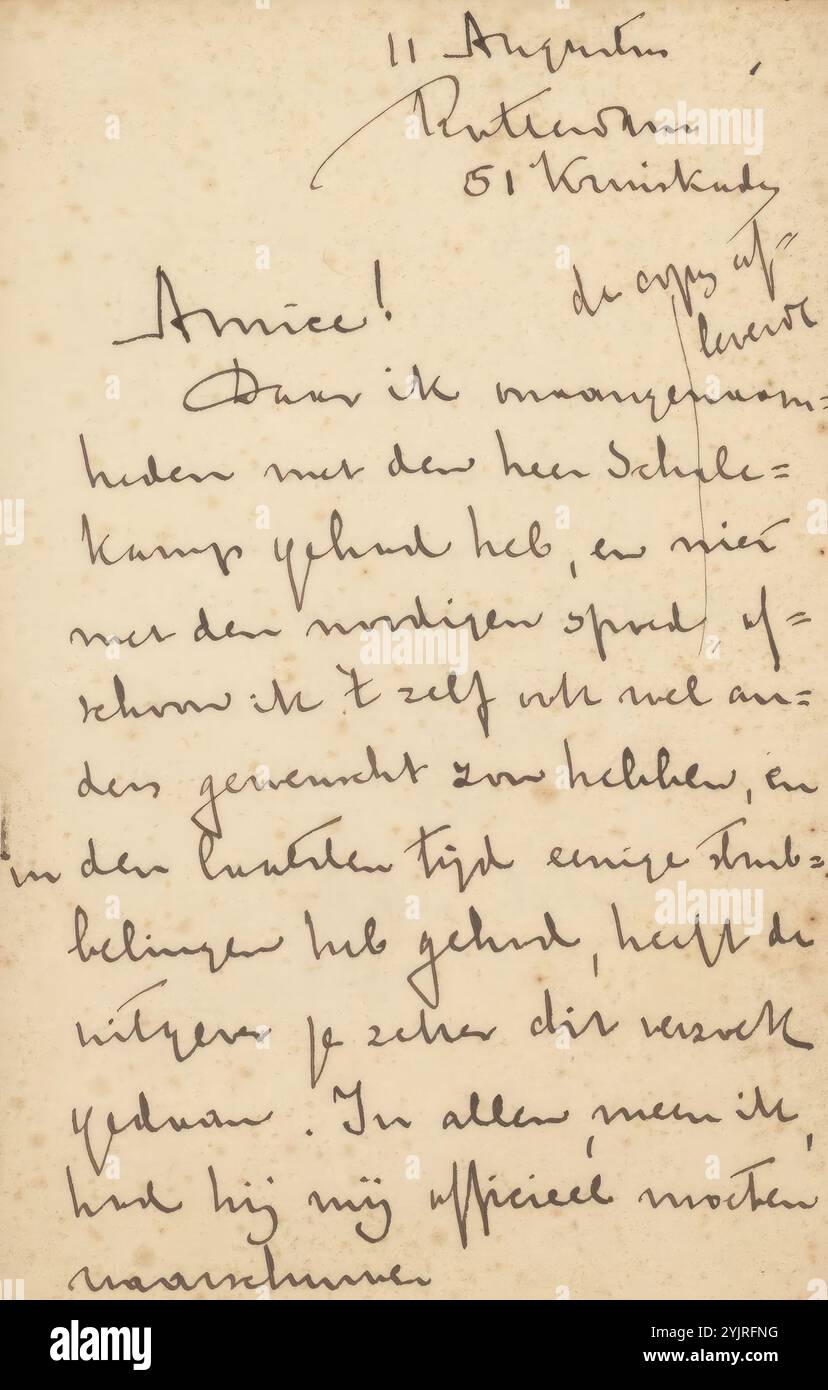 11 Augustus
Rotterdam
51 Kruiskade
de copy af=
leverde
Amice!
Daar ik onaangenaam=
heden met den heer Schale=
kamp gehad heb, en niet
met den noodigen spoed, of=
schoon ik 't zelf ook wel an=
ders gewenscht zou hebben, en
in den laatsten tijd eenige strub=
belingen heb gehad, heeft de
uitgever je zeker dit verzoek
gedaan. In allen, meen ik,
had hij mij officieel moeten
waarschuwen
alamy
Image ID: 2YJRFNG
www.alamy.com